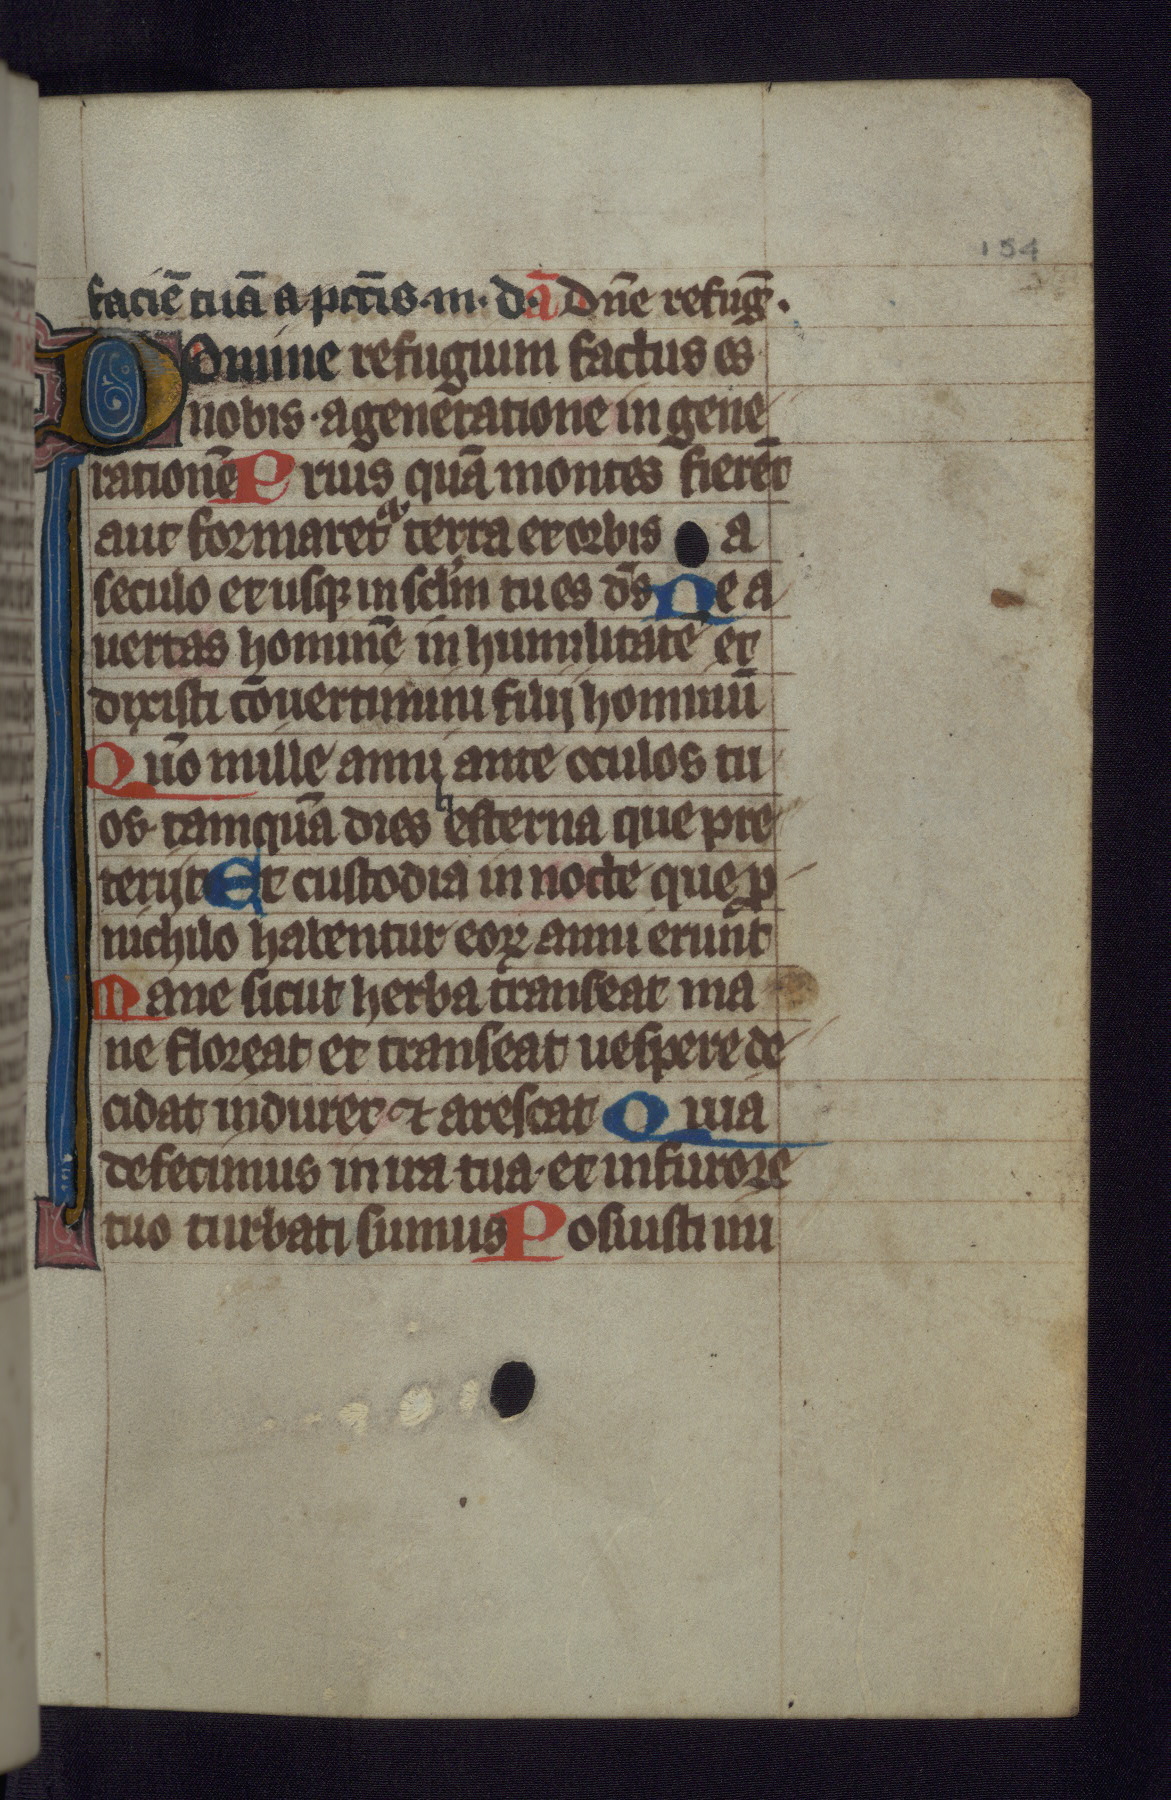 154
faciē tuā a pcc̄is m. d. ā Dn̄e refuḡ.
Domine refugium factus es
nobis· a generatione in gene
rationē Prius quā montes fierēt
aut formaret͛ terra et orbis a
seculo et usq̨ in scl̄m tu es d̄s Ne a
uertas hominē in humilitatē et
dixisti cōuertimini filij hominū
Qūo mille anni ante oculos tu
os· tamquā dies hesterna que pre
terijt Et custodia in nocte que ꝑ
nichilo habentur eoꝝ anni erunt
Mane sicut herba transeat ma
ne floreat et transeat uespere de
cidat induret ⁊ arescat Quia
defecimus in ira tua· et in furore
tuo turbati sumus Posuisti ini